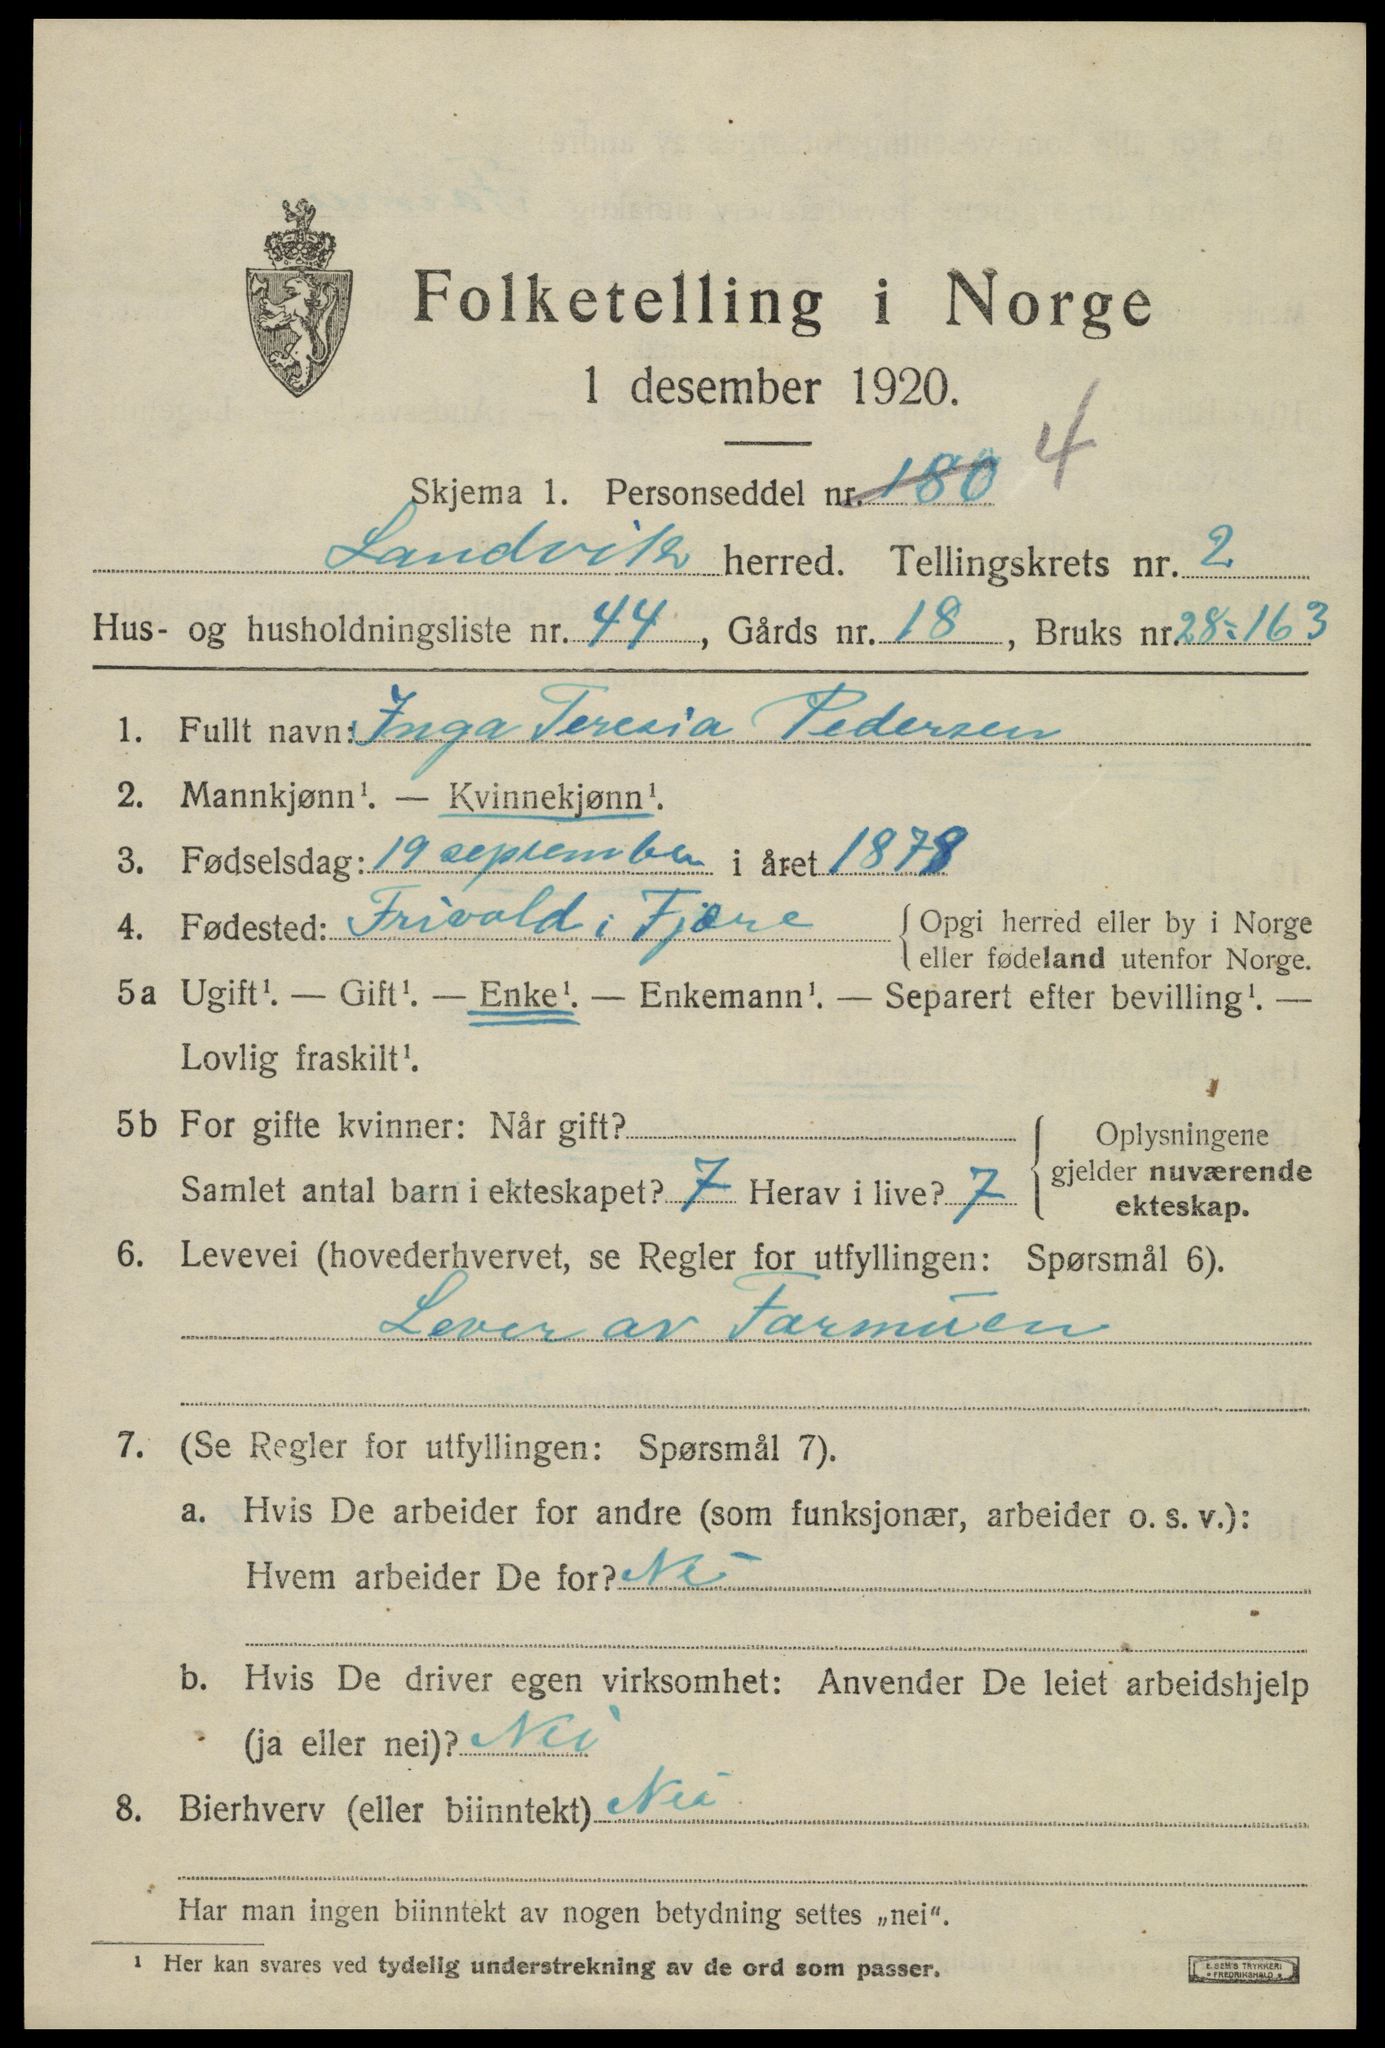 Folketelling i Norge
1 desember 1920.
Skjema 1. Personseddel nr. 180 4
Landvik herred. Tellingskrets nr. 2
Hus- og husholdningsliste nr. 44, Gårds nr. 18, Bruks nr. 28-163
1. Fullt navn: Inga Teresia Pedersen
2. Mannkjønn¹. — Kvinnekjønn¹.
3. Fødselsdag: 19 september i året 1878
4. Fødested: Frivold i Fjære { Opgi herred eller by i Norge
eller fødeland utenfor Norge.
5a Ugift¹. — Gift¹. — Enke¹. — Enkemann¹. — Separert efter bevilling¹. —
Lovlig fraskilt¹.
5b For gifte kvinner: Når gift? { Oplysningene
Samlet antal barn i ekteskapet? 7 Herav i live? 7 gjelder nuværende
ekteskap.
6. Levevei (hovederhvervet, se Regler for utfyllingen: Spørsmål 6).
Lever av Formuen
7. (Se Regler for utfyllingen: Spørsmål 7).
a. Hvis De arbeider for andre (som funksjonær, arbeider o. s. v.):
Hvem arbeider De for? Nei
b. Hvis De driver egen virksomhet: Anvender De leiet arbeidshjelp
(ja eller nei)? Nei
8. Bierhverv (eller biinntekt) Nei
Har man ingen biinntekt av nogen betydning settes „nei“.
¹ Her kan svares ved tydelig understrekning av de ord som passer.
E. SEM'S TRYKKERI
FREDRIKSHALD